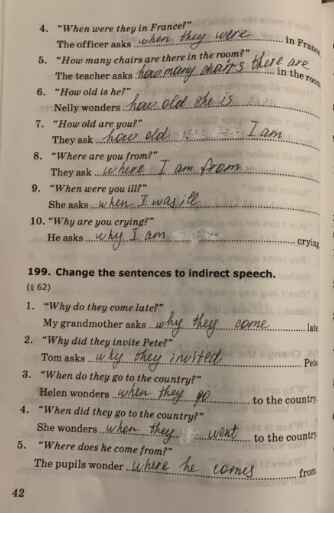 4. "When were they in France?"
The officer asks when they were in France
5. "How many chairs are there in the room?"
The teacher asks how many chairs there are in the room
6. "How old is he?"
Nelly wonders how old she is
7. "How old are you?"
They ask how old I am
8. "Where are you from?"
They ask where I am from
9. "When were you ill?"
She asks when I was ill
10. "Why are you crying?"
He asks why I am crying
199. Change the sentences to indirect speech.
(§ 62)
1. "Why do they come late?"
My grandmother asks why they come late
2. "Why did they invite Pete?"
Tom asks why they invited Pete
3. "When do they go to the country?"
Helen wonders when they go to the country
4. "When did they go to the country?"
She wonders when they went to the country
5. "Where does he come from?"
The pupils wonder where he comes from
42